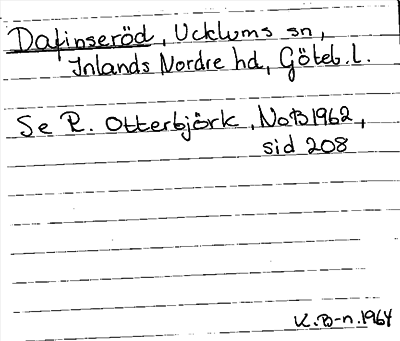 Dafinseröd, Ucklums sn,
Inlands Nordre hd, Göteb.l.
Se R. Otterbjörk, NoB 1962,
sid 208
K.B-n.1964